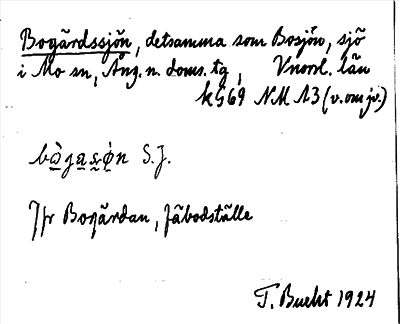 Bogårdssjön, detsamma som Bosjön, sjö
i Mo sn, Ång. n. doms. tg, Vnorrl. län
KG69 NM 13 (v. om jv.)
S.J.
Jfr Bogårdan, fäbodställe
T. Bucht 1924